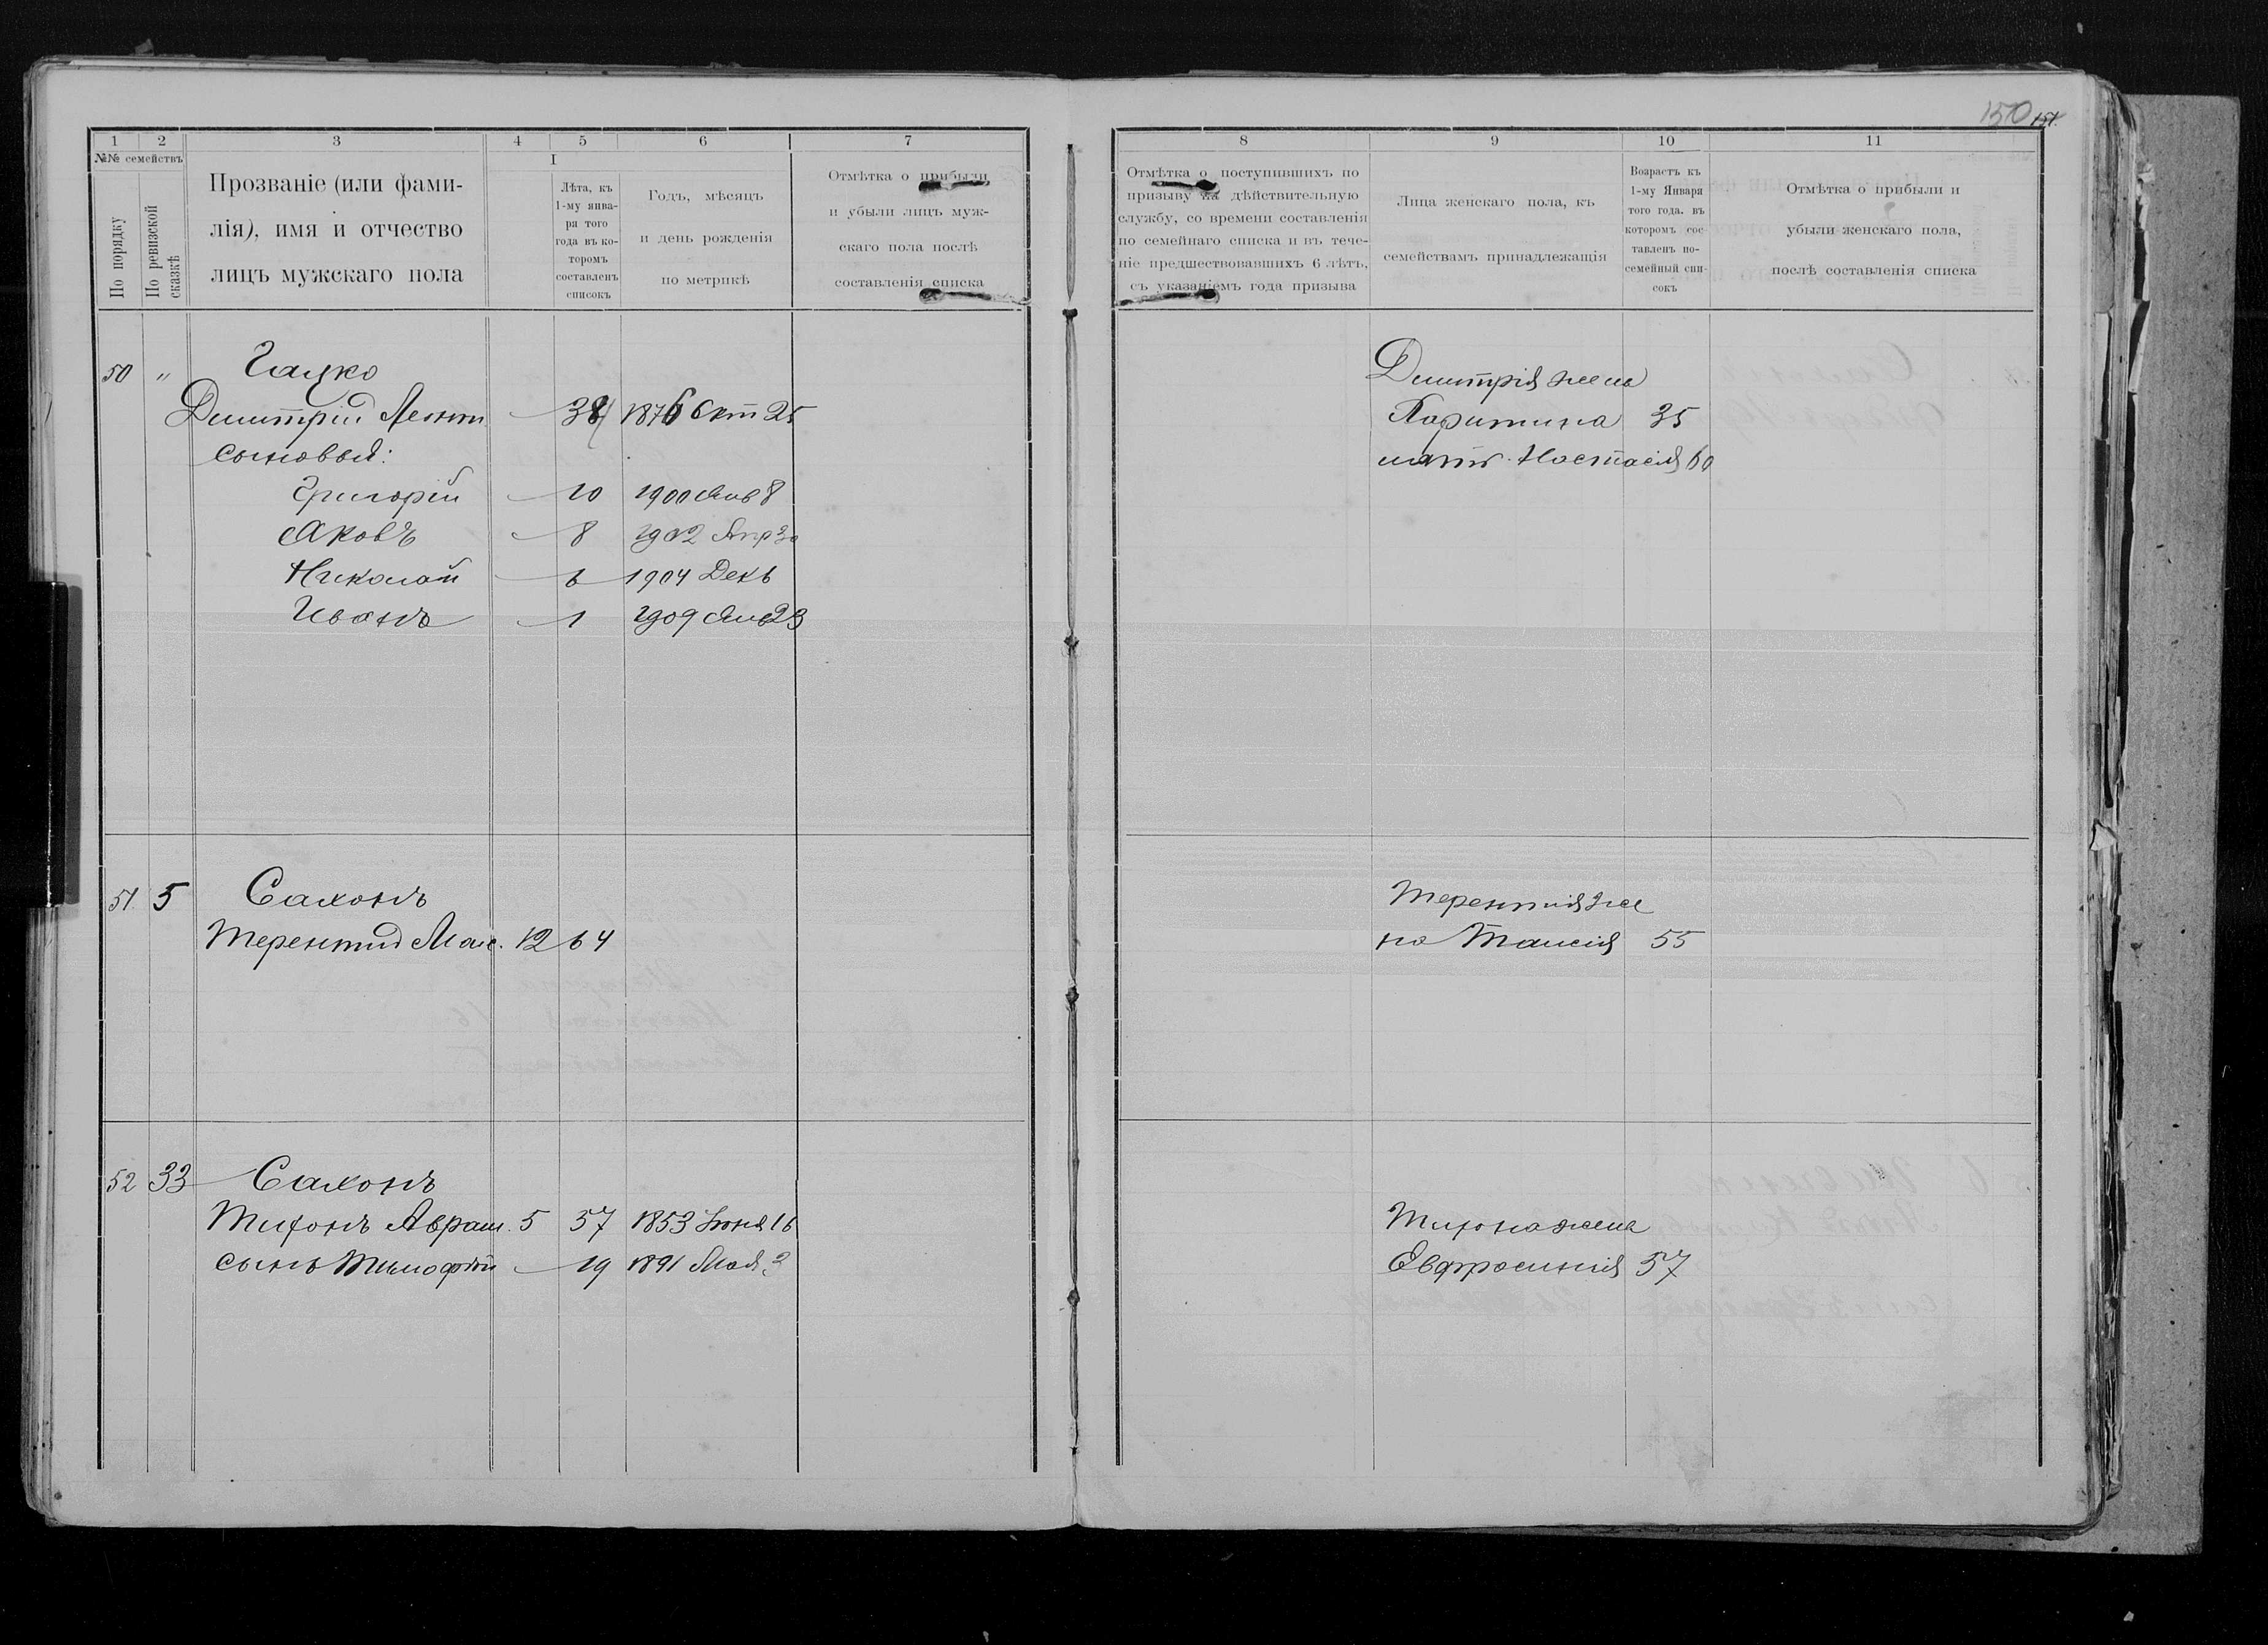 150 151.
1 2 3 4 5 6 7
№№ семействъ
По порядку
По ревизской сказкѣ
Прозваніе (или фами-
лія), имя и отчество
лицъ мужскаго пола
I
Лѣта, къ
1-му янва-
ря того
года въ ко-
торомъ
составленъ
списокъ
Годъ, мѣсяцъ
и день рожденія
по метрикѣ
Отмѣтка о прибыли
и убыли лицъ муж-
скаго пола послѣ
составленія списка
50 " Гацко
Димитрій Леонт. — 38 1876 Окт 25
сыновья:
Григорій — 10 1900 Янв 8
Яковъ — 8 1902 Апр 30
Николай — 6 1904 Дек 6
Иванъ — 1 1909 Янв 23
51. 5 Сахонъ
Терентій Мак. 12 64
52 33 Сахонъ
Тихонъ Аврам. 5 57 1853 Іюня 16
сынъ Тимофей — 19 1891 Мая 3
8 9 10 11
Отмѣтка о поступившихъ по
призыву на дѣйствительную
службу, со времени составленія
по семейнаго списка и въ тече-
ніе предшествовавшихъ 6 лѣтъ,
съ указаніемъ года призыва
Лица женскаго пола, къ
семействамъ принадлежащія
Возрастъ къ
1-му Января
того года, въ
которомъ сос-
тавленъ по-
семейный спи-
сокъ
Отмѣтка о прибыли и
убыли женскаго пола,
послѣ составленія списка
Димитрія жена
Харитина 35
мать Настасія 60
Терентія же
на Таисія 55
Тихона жена
Евфросинія 57